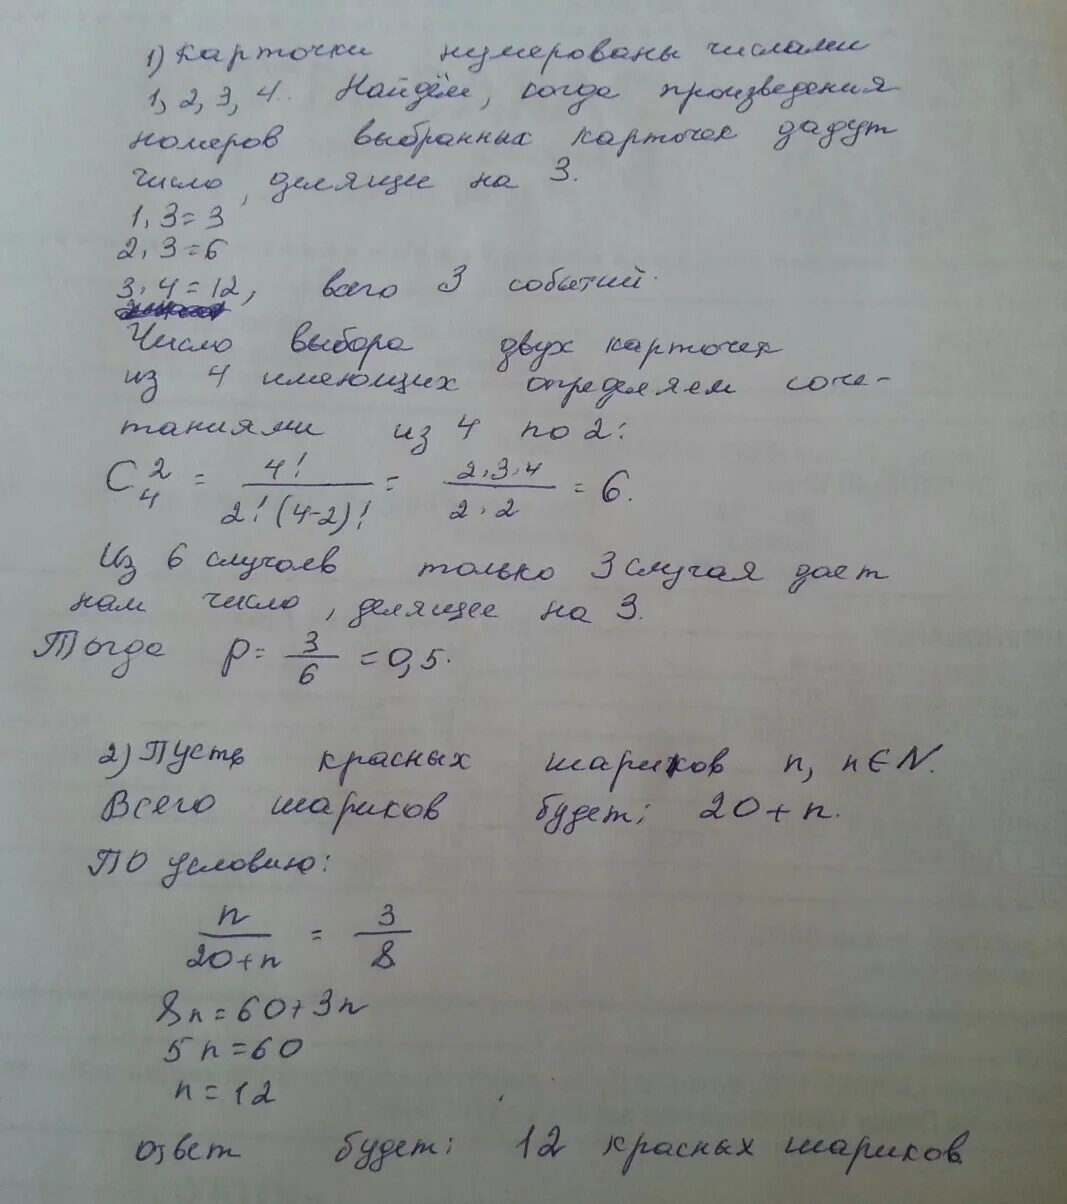 1) Карточки нумерованы числами
1, 2, 3, 4. Найдём, когда произведения
номеров выбранных карточек дадут
число, делящее на 3.
1·3=3
2·3=6
3·4=12, всего 3 событий.
Число выбора двух карточек
из 4 имеющих определяем соче-
таниями из 4 по 2:
C₄² = 4!/(2!(4-2)!) = (2·3·4)/(2·2) = 6.
Из 6 случаев только 3 случая дает
нам число, делящее на 3.
Тогда p = 3/6 = 0,5.
2) Пусть красных шариков n, n∈N.
Всего шариков будет: 20+n.
По условию:
n/(20+n) = 3/8
8n=60+3n
5n=60
n=12
ответ будет: 12 красных шариков